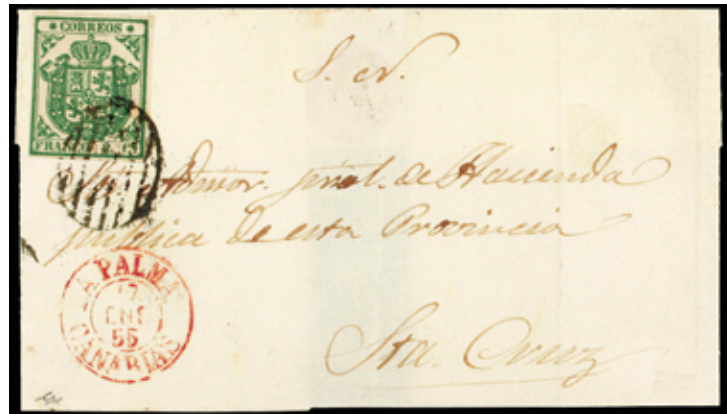 CORREOS
S. N.
Admor. pral. de Hacienda
publica de esta Provincia
LA PALMA
17
ENE
55
CANARIAS
Sta. Cruz